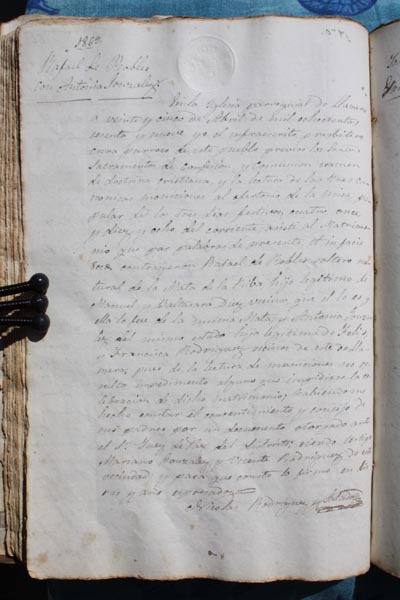 1869
Rafael de Robles
con Antonia Gonzalez
En la Yglesia parroquial de Llamera
a veinte y cinco de Abril de mil ochocientos
sesenta y nueve yo el infraescrito presbitero
cura parroco de este pueblo previos los Santos
Sacramentos de Confesión y Comunion examen
de doctrina cristiana, y la lectura de las tres ca
nonicas moniciones al ofertorio de la misa po
pular de los tres dias festivos cuatro once,
y diez y ocho del corriente, asisti al Matrimo
nio que por palabras de presente, et in facie
contrajeron Rafael de Robles soltero na
tural de la Mata de la Riba hijo legitimo de
Manuel y Valeriana Diez vecino que el lo es y
ella lo fue de la misma Mata, y Antonia Gonza
lez del mismo estado hija legitima de Felix
y Francisca Rodriguez vecinos de este de Lla
mera; pues de la lectura de moniciones no re
sulto impedimento alguno que impidiese la ce
lebracion de dicho matrimonio, habiendome
hecho constar el consentimiento y consejo de
sus padres por un documento otorgado ante
el Sr. Juez de Paz del distrito siendo testigos
Mariano Gonzalez y Vicente Rodriguez de esta
vecindad y para que conste lo firmo en dia
mes y año expresados
Nicolas Rodriguez y